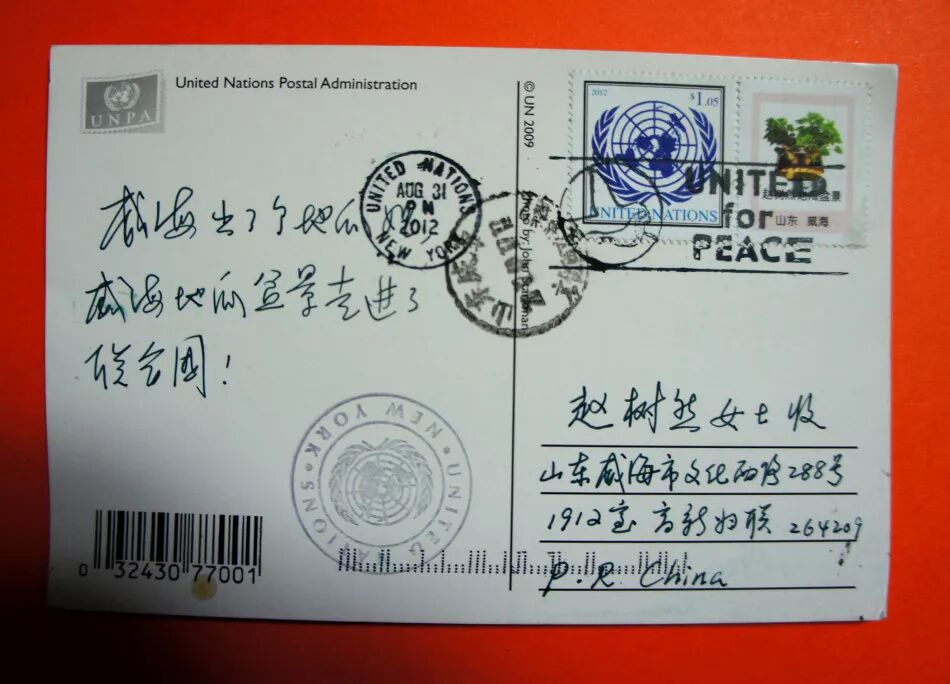 UNPA
United Nations Postal Administration
威海出了个地瓜
威海地瓜盆景走进了
联合国!
UNITED NATIONS
AUG 31
PM
2012
NEW YORK
© UN 2009
Photo by: John
2012
$1.05
UNITED NATIONS
盆景
山东 威海
UNITED
for
PEACE
赵树然女士收
山东威海市文化西路288号
1912室 高新妇联 264209
P.R. China
UNITED NATIONS · NEW YORK ·
0 32430 77001